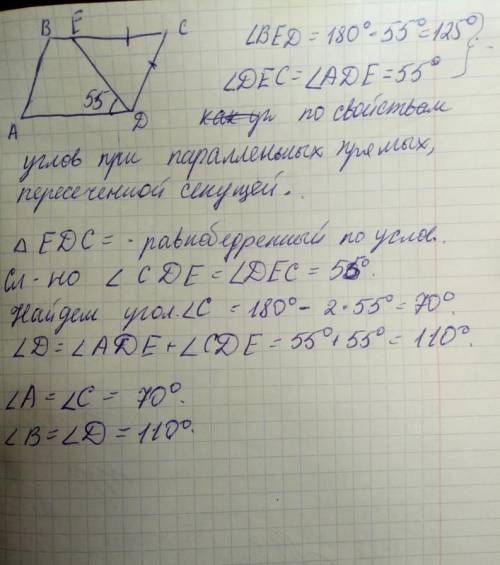 B E C
∠BED = 180° - 55° = 125°
∠DEC = ∠ADE = 55°
55
A D
как уг по свойствам
углов при параллельных прямых,
пересеченной секущей.
△ EDC = - равнобедренный по услов.
Сл-но ∠CDE = ∠DEC = 55°.
Найдем угол ∠C = 180° - 2·55° = 70°.
∠D = ∠ADE + ∠CDE = 55° + 55° = 110°.
∠A = ∠C = 70°.
∠B = ∠D = 110°.